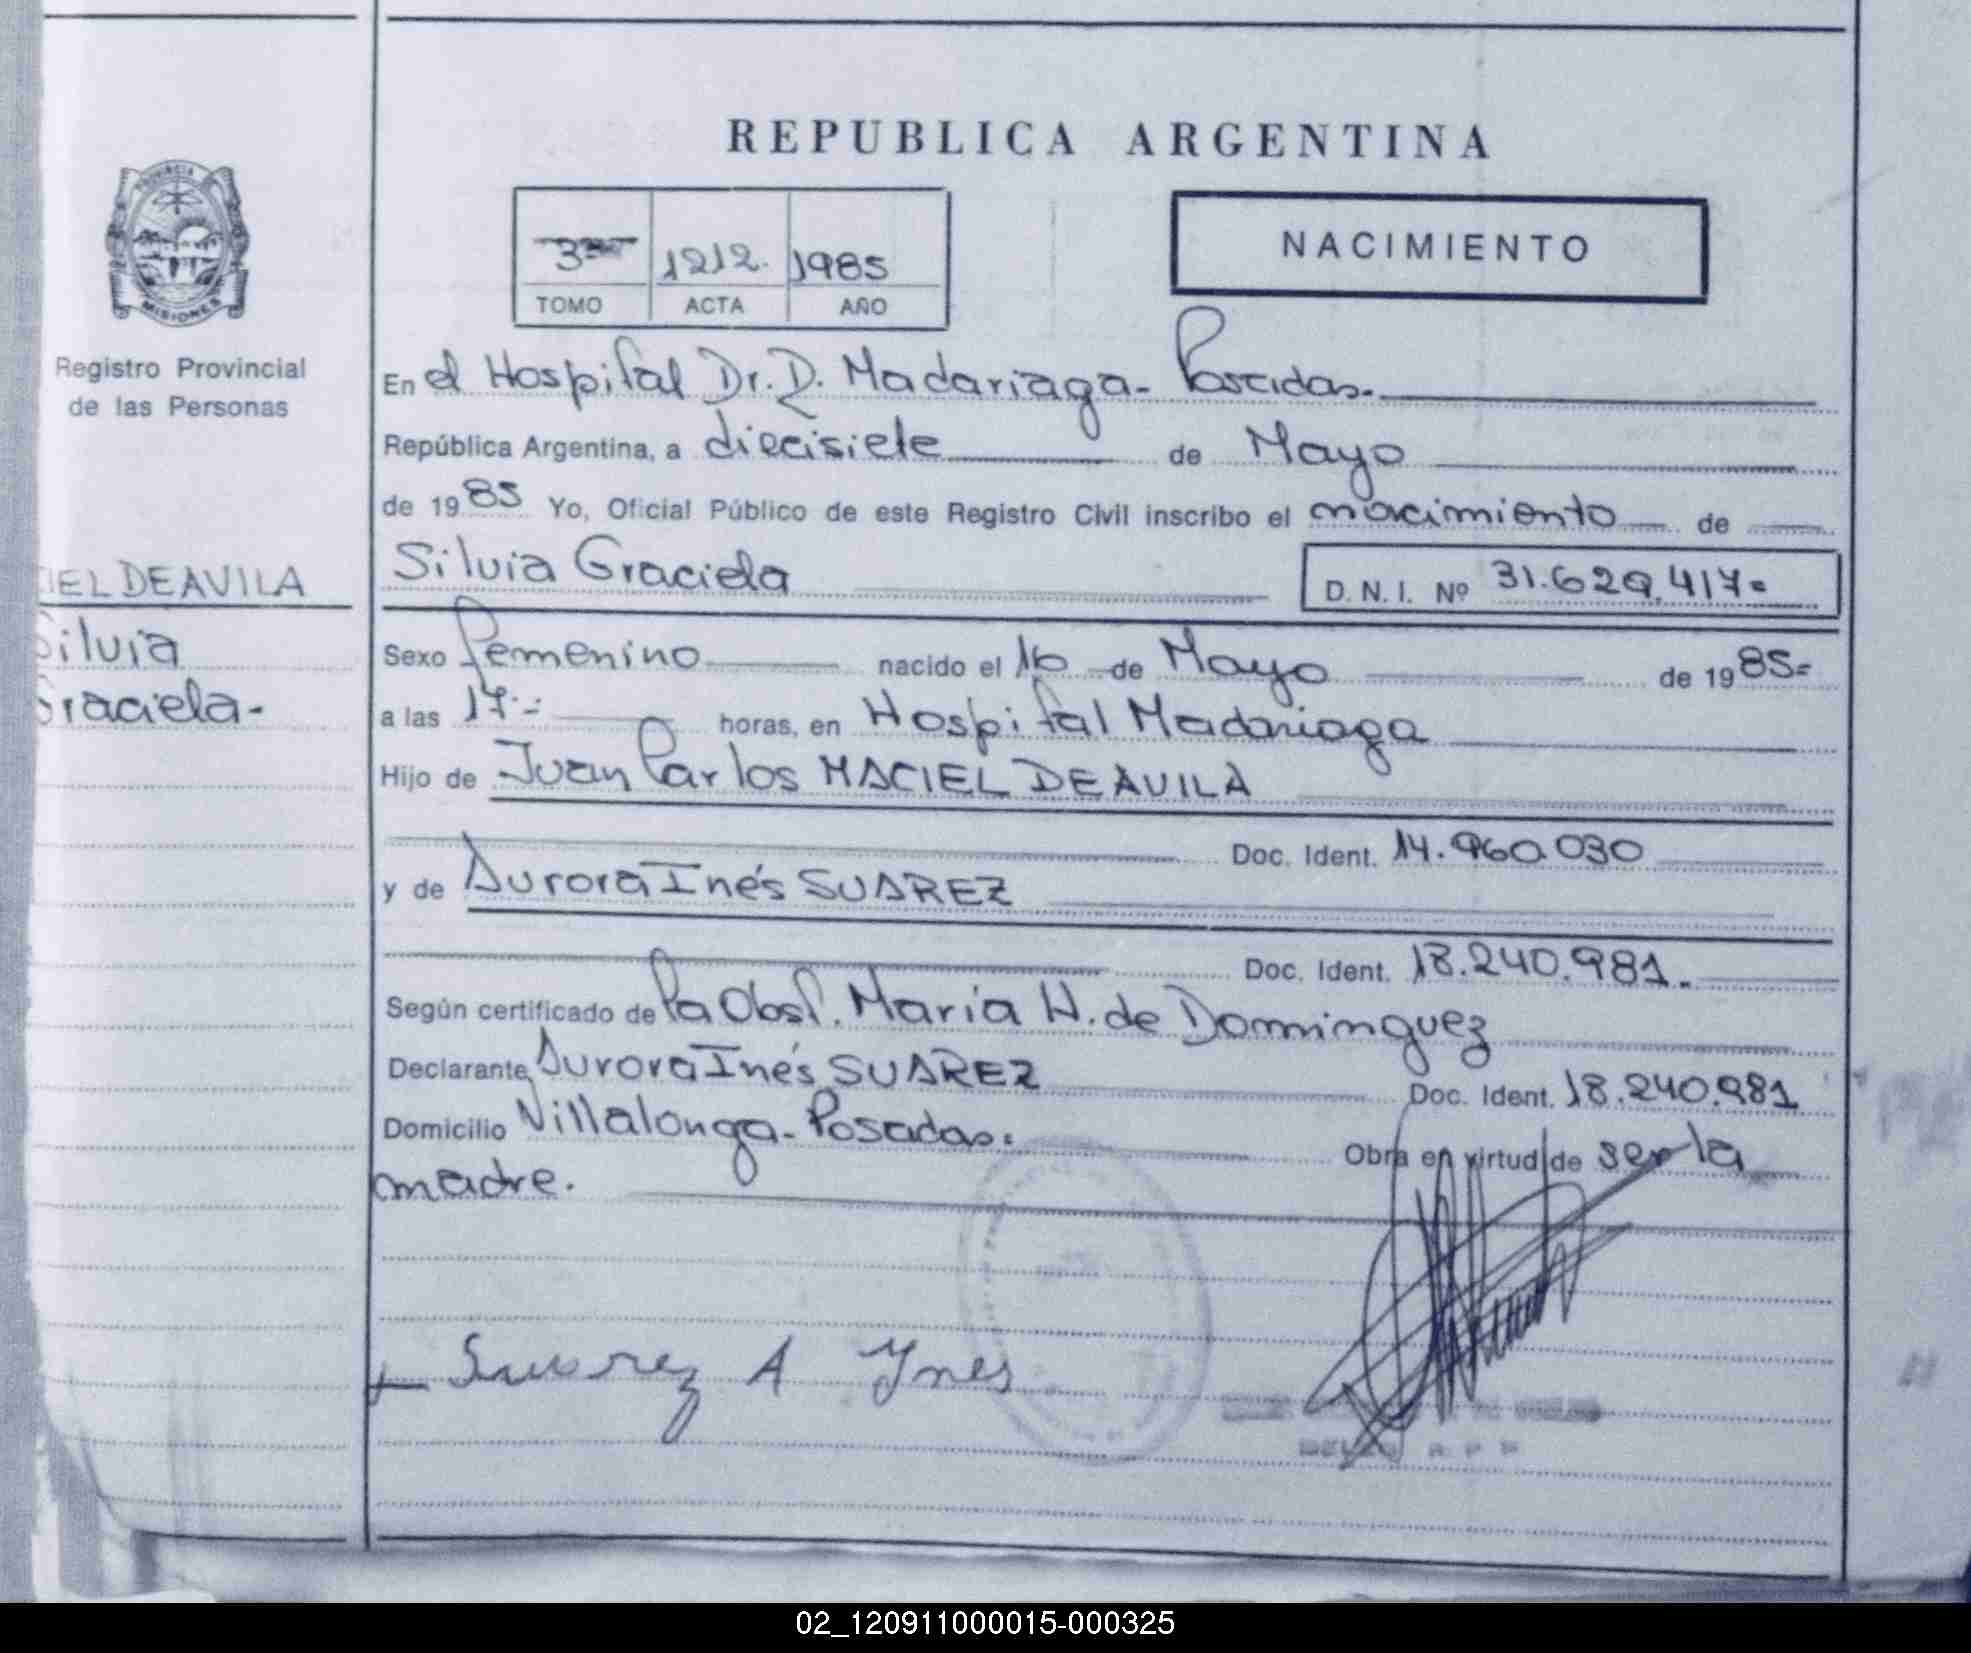 REPUBLICA ARGENTINA
PROVINCIA
MISIONES
Registro Provincial
de las Personas
IEL DEAVILA
Silvia
Graciela-
3
1212. 1985
TOMO ACTA AÑO
NACIMIENTO
En el Hospital Dr. R. Madariaga- Posadas.
República Argentina, a diecisiete de Mayo
de 1985 Yo, Oficial Público de este Registro Civil inscribo el nacimiento de
Silvia Graciela D. N. I. Nº 31.629.417=
Sexo femenino nacido el 16 de Mayo de 1985=
a las 17.= horas, en Hospital Madariaga
Hijo de Juan Carlos MACIEL DEAVILA
Doc. Ident. 14.960.030
y de Aurora Inés SUAREZ
Doc. Ident. 18.240.981.
Según certificado de la Obst. María H. de Dominguez
Declarante Aurora Inés SUAREZ Doc. Ident. 18.240.981
Domicilio Villalonga- Posadas. Obra en virtud de ser la
madre.
Suarez A Ynes
02_120911000015-000325